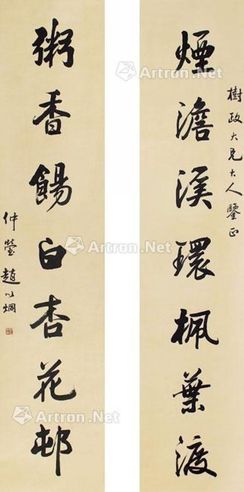 樹政大兄大人鑒正
煙澹溪環楓葉渡
粥香餳白杏花邨
仲瑩趙以炯
Artron.Net
Artron.Net
Artron.Net
Artron.Net